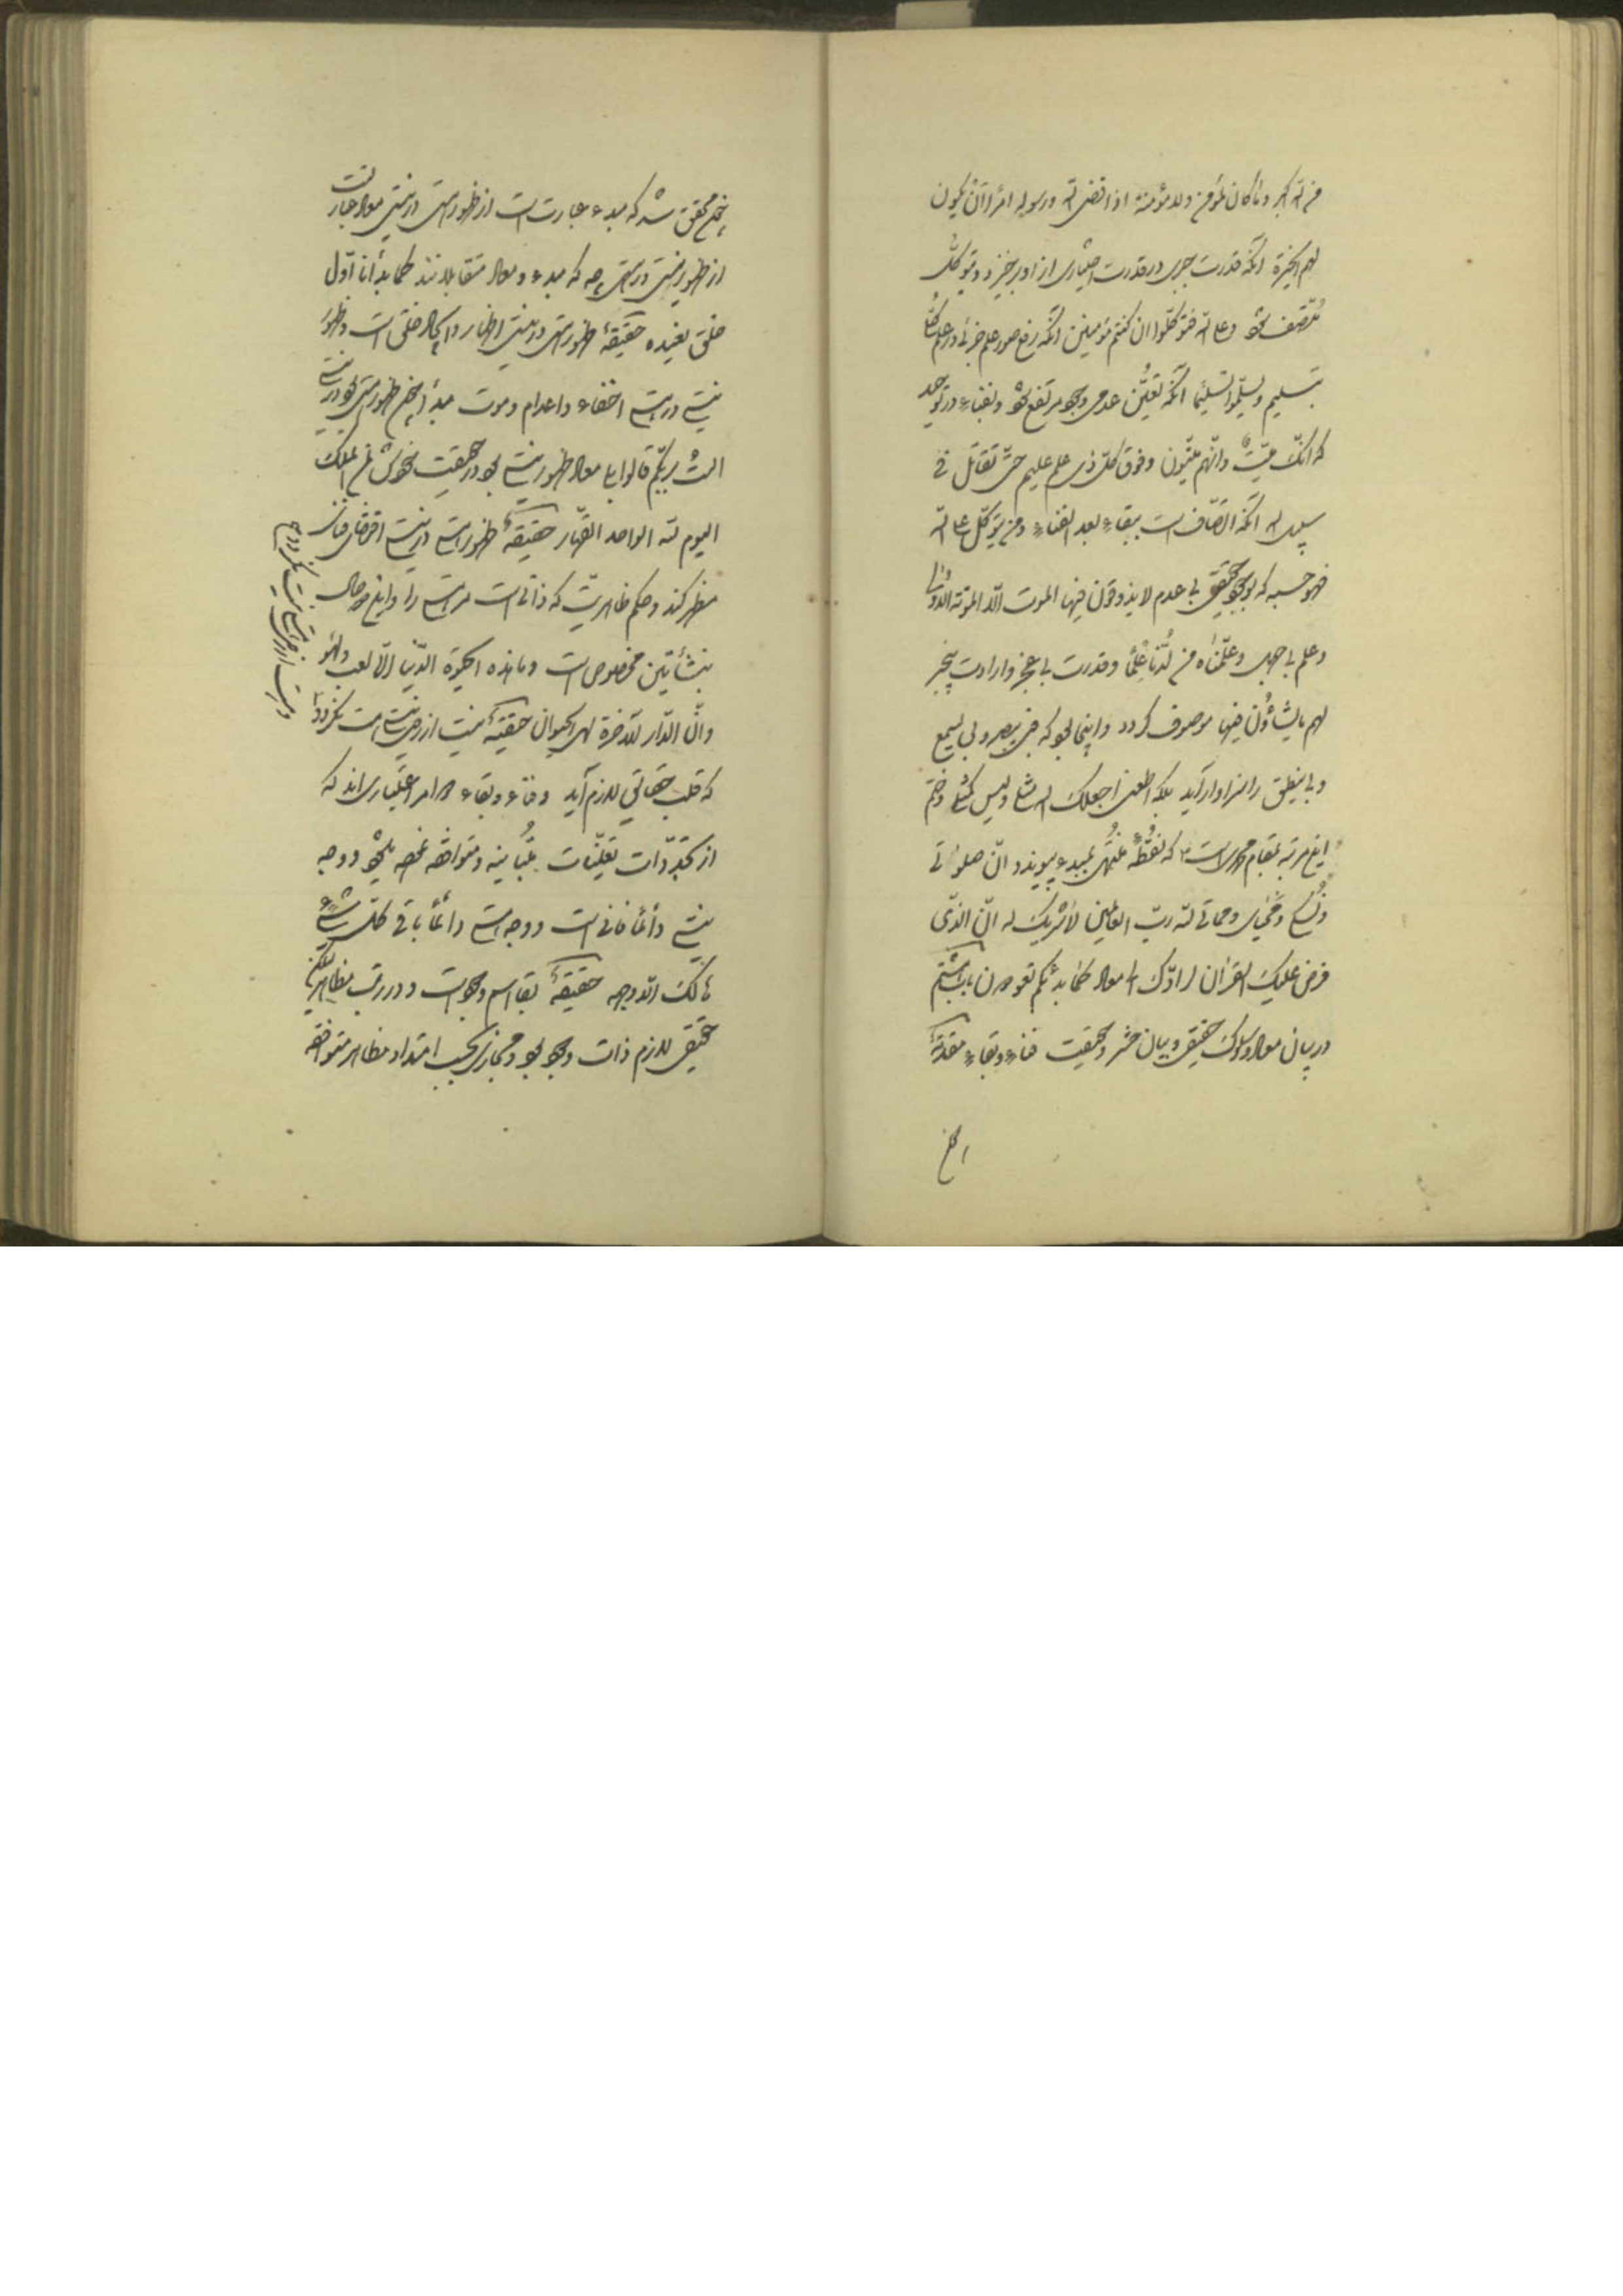 من الله اکبر و ما کان لمؤمن ولا مؤمنة اذا قضی الله و رسوله امراً ان یکون
لهم الخیرة آنکه قدرت جزوی در قدرت اختیاری از او برخیزد و بتوکل
متصف شود و علی الله فتوکلوا ان کنتم مؤمنین آنکه رفع صور علم جزئی در علم کلی
تسلیم و یسلموا تسلیما آنکه تعین عدمی وجود مرتفع شود و بفناء در توحید
که انک میت و انهم میتون و فوق کل ذی علم علیم حتی تقاتل فی
سبیل الله آنکه اتصاف است ببقاء بعد الفناء و من یتوکل علی الله
فهو حسبه که بوجود حقیقی بی عدم لا یذوقون فیها الموت الا الموتة الاولی
و علم بی جهل و علمناه من لدنا علما و قدرت بی عجز و ارادت بی جبر
لهم ما یشاؤن فیها موصوف گردد و اینجا بود که فبی یبصر و بی یسمع
و بی ینطق را سزاوار آید بلکه اطعنی اجعلک مثلی و لیس کمثلی و ختم
این مرتبه بمقام محمدی است که نقطه منتهی بمبدء پیوندد ان صلوتی
و نسکی و محیای و مماتی لله رب العالمین لا شریک له ان الذی
فرض علیک القرآن لرادک الی معاد کما بدئکم تعودون باب هشتم
در بیان معاد و سلوک حقیقی و بیان حشر و حقیقت فناء و بقاء مقدمة
محقق شد که مبدء عبارت است از ظهور هستی در نیستی معاد عبارت است
از ظهور نیستی در هستی چه که مبدء و معاد متقابلانند کما بدأنا اول
خلق نعیده حقیقة ظهور هستی در نیستی اظهار و ایجاد خلق است و ظهور
نیستی در هستی اخفاء و اعدام و موت مبدأ ظهور هستی بود در نیستی
الست بربکم قالوا بلی معاد ظهور نیستی بود در حقیقت لمن الملک
الیوم لله الواحد القهار حقیقة ظهور هستی در نیستی
مظهر کند و حکم ظاهریت که ذاتی است هستی را و این دو حال
بنشأتین مخصوص است و ما هذه الحیوة الدنیا الا لعب و لهو
و ان الدار الآخرة لهی الحیوان حقیقة نیست از حیثیت نیستی هست نگردد
که قلب حقایق لازم آید و فناء و بقاء دو امر اعتباری اند که
از تجددات تعینات متباینه و متوافقه وجه
نیستی دائما فانی است و وجه هستی دائما باقی کل شیء
هالک الا وجهه حقیقة بقا اسم وجود است
حقیقی لازم ذات وجود بود و مجازی بحسب امتداد مظاهر متوافقه